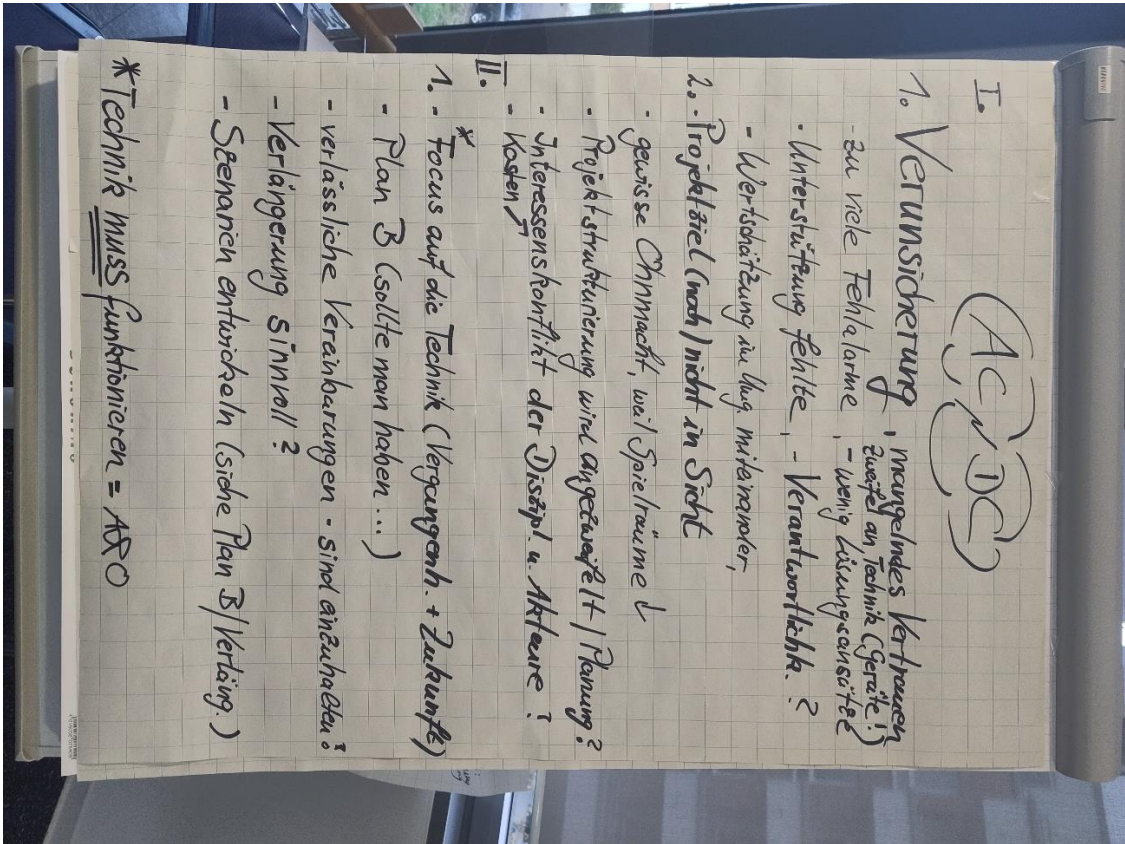 AC/DC
I.
1. Verunsicherung, mangelndes Vertrauen
Zweifel an Technik (Geräte!)
- zu viele Fehlalarme, - wenig Lösungsansätze
- Unterstützung fehlte, - Verantwortlichk.?
- Wertschätzung im Umg. miteinander,
2. - Projektziel (noch) nicht in Sicht
- gewisse Ohnmacht, weil Spielräume ↓
- Projektstrukturierung wird angezweifelt / Planung?
- Interessenskonflikt der Diszipl. u. Akteure?
- Kosten ↗
II.
1. - * Focus auf die Technik (Vergangenh. + Zukunft)
- Plan B (sollte man haben ...)
- verlässliche Vereinbarungen - sind einzuhalten?
- Verlängerung sinnvoll?
- Szenarien entwickeln (siehe Plan B / Verläng.)
*Technik muss funktionieren =